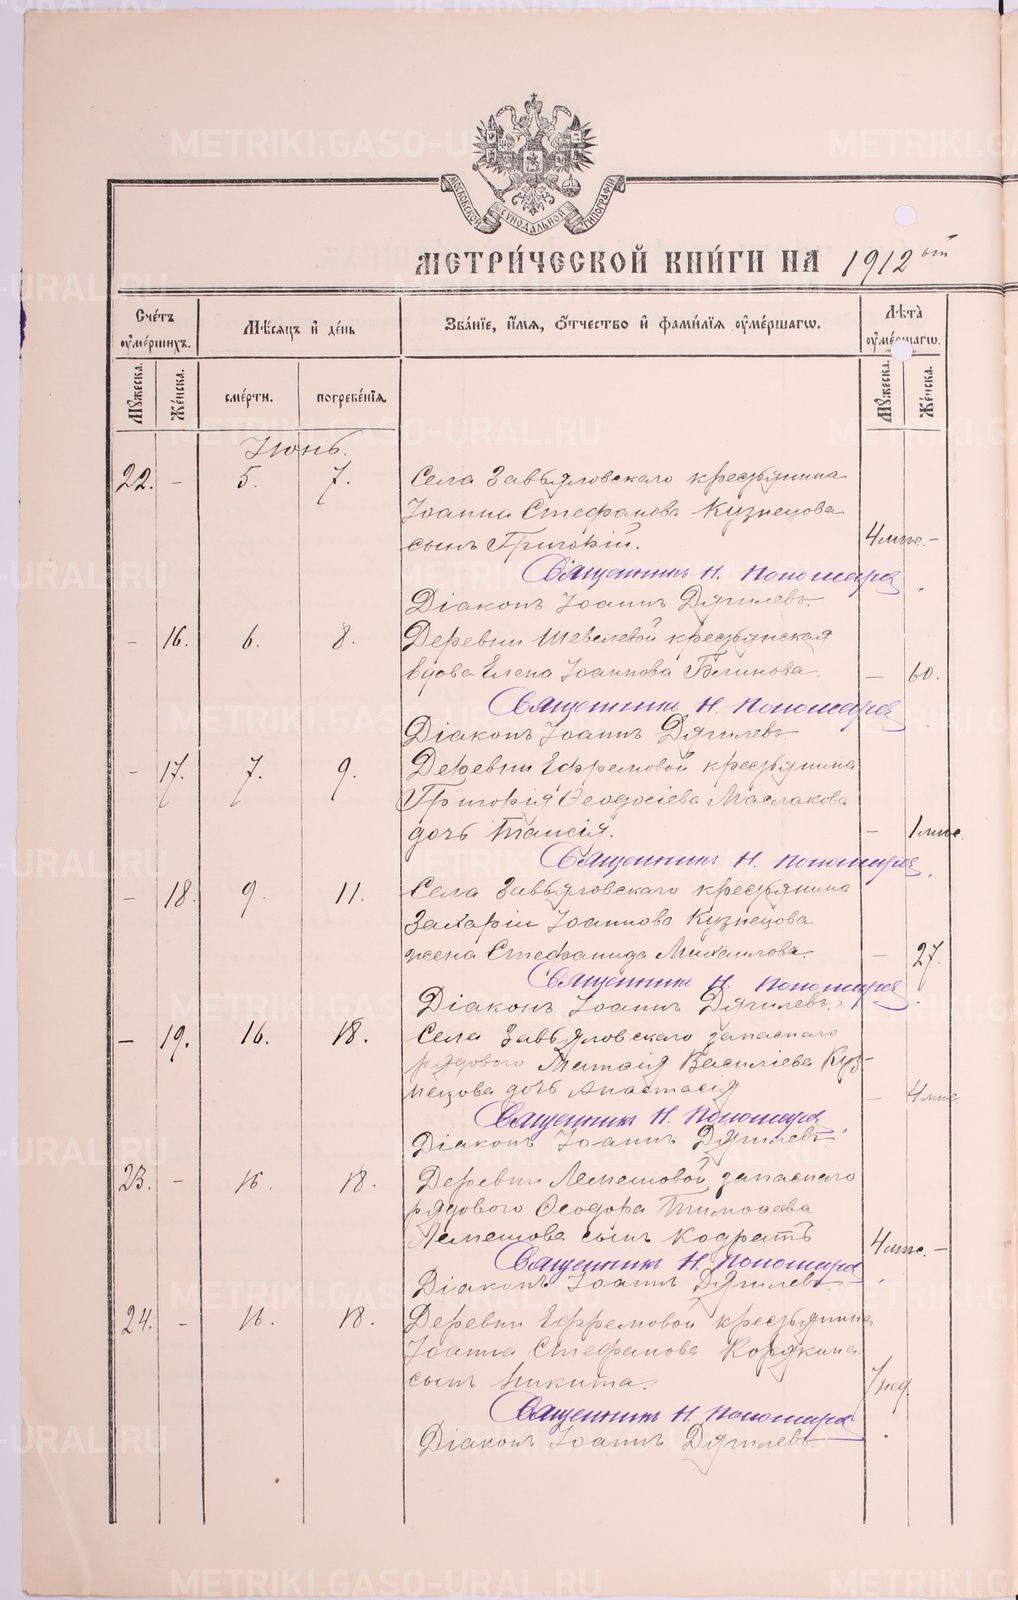 МОСКОВСКОЙ СУНОДАЛЬНОЙ ТИПОГРАФІИ
МЕТРИ́ЧЕСКОЙ КНИ́ГИ НА 1912 ый
Сче́тъ оуме́ршихъ.
Мѣ́сяцъ и҆ де́нь
Зва́нїе, и҆́мя, ѻ҆́тчество и҆ фами́лїя оуме́ршагѡ.
Лѣ́та̀ оуме́ршагѡ.
Мꙋ́жеска.
Же́нска.
сме́рти.
погребе́нїя.
Мꙋ́жеска.
Же́нска.
Іюнь.
22. - 5. 7. Села Завьяловскаго крестьянина
Іоанна Стефанова Кузнецова
сынъ Григорій. 4 мѣс. -
Священникъ Н. Пономарев
Діаконъ Іоаннъ Дягилевъ.
- 16. 6. 8. Деревни Шевелевой крестьянская
вдова Елена Іоаннова Блинова. - 60.
Священникъ Н. Пономарев
Діаконъ Іоаннъ Дягилевъ
- 17. 7. 9. Деревни Ефремовой крестьянина
Григорія Ѳеодосіева Маслакова
дочь Таисія. - 1 мѣс.
Священникъ Н. Пономарев
- 18. 9. 11. Села Завьяловскаго крестьянина
Захаріи Іоаннова Кузнецова
жена Стефанида Михаилова. - 27.
Священникъ Н. Пономарев
Діаконъ Іоаннъ Дягилевъ.
- 19. 16. 18. Села Завьяловскаго запаснаго
рядового Матѳія Василіева Куз-
нецова дочь Анастасія - 4 мѣс.
Священникъ Н. Пономарев
Діаконъ Іоаннъ Дягилевъ
23. - 16. 18. Деревни Лемешовой запаснаго
рядового Ѳеодора Тимоѳеева
Лемешова сынъ Кодратъ 4 мѣс. -
Священникъ Н. Пономарев
Діаконъ Іоаннъ Дягилевъ
24. - 16. 18. Деревни Ефремовой крестьянина
Іоанна Стефанова Корякина
сынъ Никита. 7 нед.
Священникъ Н. Пономарев
Діаконъ Іоаннъ Дягилевъ
METRIKI.GASO-URAL.RU